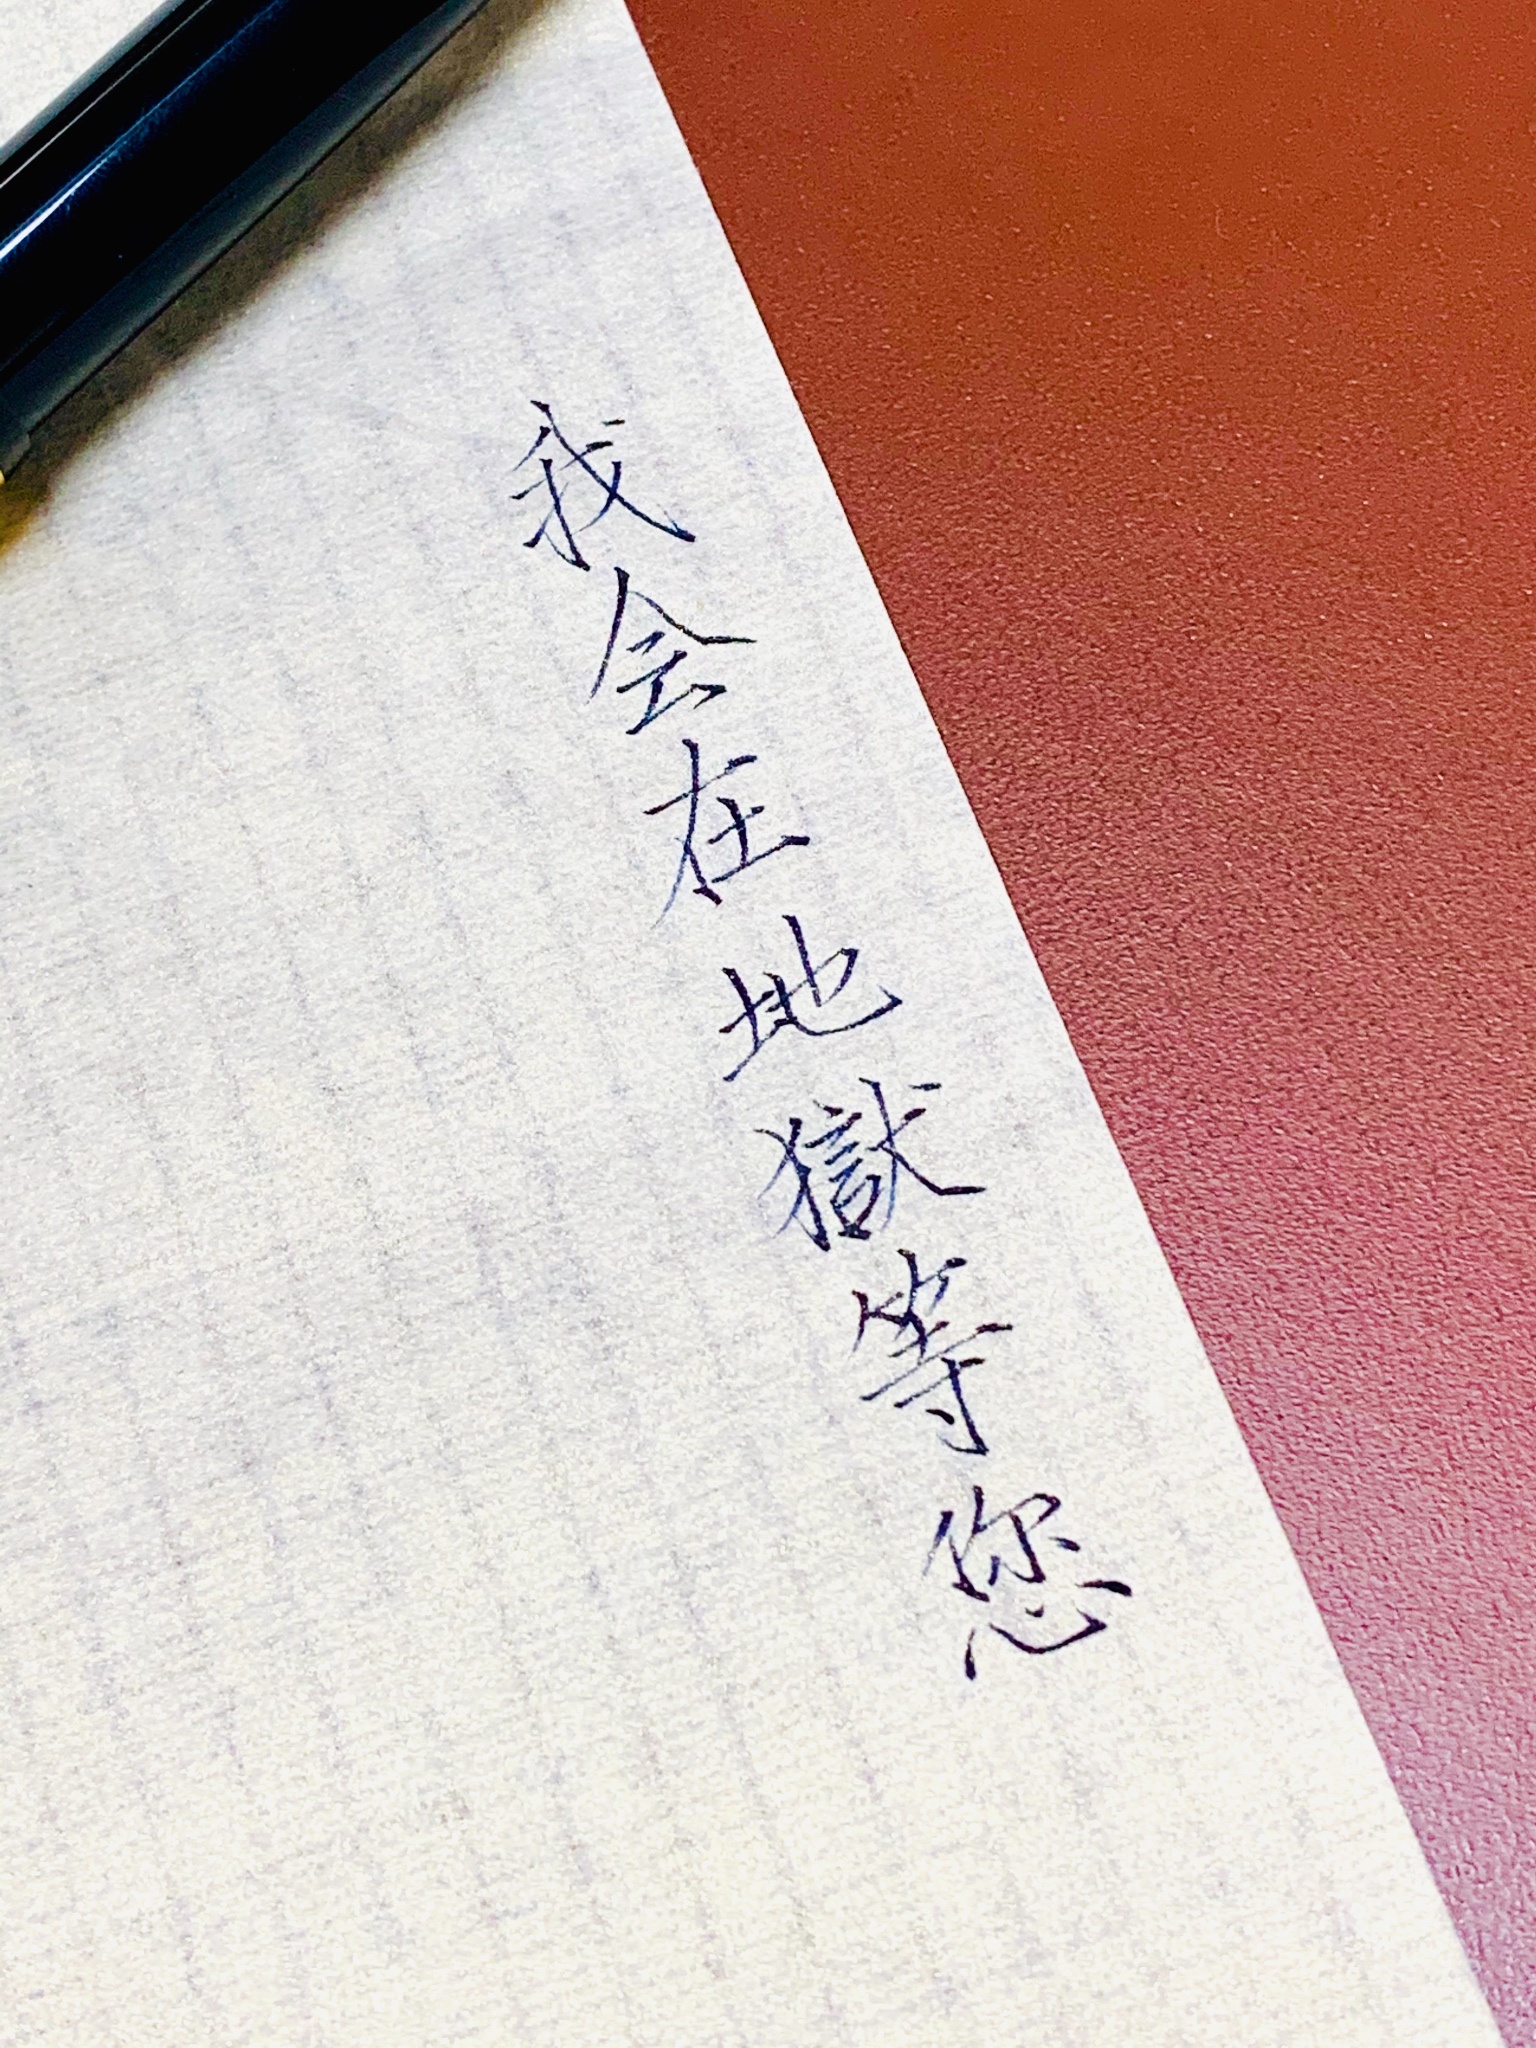 我会在地獄等您